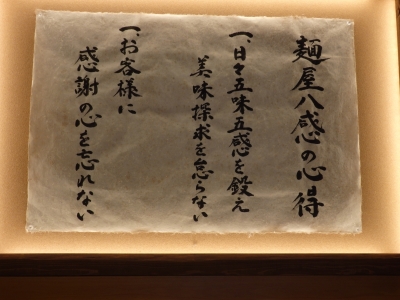 麺屋八感の心得
一、日々五味五感を鍛え
美味探求を怠らない
一、お客様に
感謝の心を忘れない